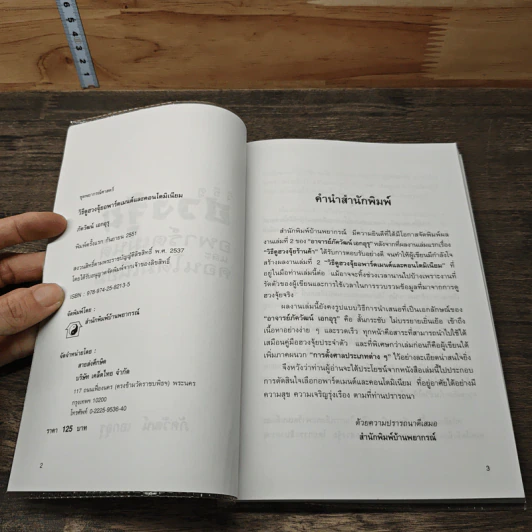 ชุดพยากรณ์ศาสตร์
วิธีดูฮวงจุ้ยอพาร์ตเมนต์และคอนโดมิเนียม
ภัควัฒน์ เอกอุรุ
พิมพ์ครั้งแรก กันยายน 2551
สงวนลิขสิทธิ์ตามพระราชบัญญัติลิขสิทธิ์ พ.ศ. 2537
โดยได้รับอนุญาตจัดพิมพ์จากเจ้าของลิขสิทธิ์
ISBN : 978-974-25-8213-5
จัดพิมพ์โดย :
สำนักพิมพ์บ้านพยากรณ์
จัดจำหน่ายโดย :
สายส่งศึกษิต
บริษัท เคล็ดไทย จำกัด
117 ถนนเฟื่องนคร (ตรงข้ามวัดราชบพิธฯ) พระนคร
กรุงเทพฯ 10200
โทรศัพท์ 0-2225-9536-40
ราคา 125 บาท
2
คำนำสำนักพิมพ์
สำนักพิมพ์บ้านพยากรณ์ มีความยินดีที่ได้มีโอกาสจัดพิมพ์ผล
งานเล่มที่ 2 ของ "อาจารย์ภัควัฒน์ เอกอุรุ" หลังจากที่ผลงานเล่มแรกเรื่อง
"วิธีดูฮวงจุ้ยร้านค้า" ได้รับการตอบรับอย่างดี จนทำให้ผู้เขียนมีกำลังใจ
สร้างผลงานเล่มที่ 2 "วิธีดูฮวงจุ้ยอพาร์ตเมนต์และคอนโดมิเนียม" เช่
อยู่ในมือท่านเล่มนี้ต่อ แม้อาจจะทิ้งช่วงเวลานานไปบ้างเพราะงานที่
รัดตัวของผู้เขียนและการใช้เวลาในการรวบรวมข้อมูลที่มาจากการดู
ฮวงจุ้ยจริง
ผลงานเล่มนี้ยังคงรูปแบบวิธีการนำเสนอที่เป็นเอกลักษณ์ของ
"อาจารย์ภัควัฒน์ เอกอุรุ" คือ สั้นกระชับ ไม่บรรยายเยิ่นเย้อ เข้าถึง
เนื้อหาอย่างง่าย ๆ และรวดเร็ว ทุกหน้าคือสาระที่สามารถนำไปใช้ได้
เสมือนคู่มือฮวงจุ้ยประจำตัว และที่พิเศษกว่าเล่มก่อนก็คือผู้เขียนได้
เพิ่มภาคผนวก "การตั้งศาลประเภทต่าง ๆ" ไว้อย่างละเอียดน่าสนใจยิ่ง
จึงหวังว่าท่านผู้อ่านจะได้ประโยชน์จากหนังสือเล่มนี้ไปประกอบ
การตัดสินใจเลือกอพาร์ตเมนต์และคอนโดมิเนียม ที่อยู่อาศัยได้อย่างมี
ความสุข ความเจริญรุ่งเรือง ตามที่ท่านปรารถนา
ด้วยความปรารถนาดีเสมอ
สำนักพิมพ์บ้านพยากรณ์
3